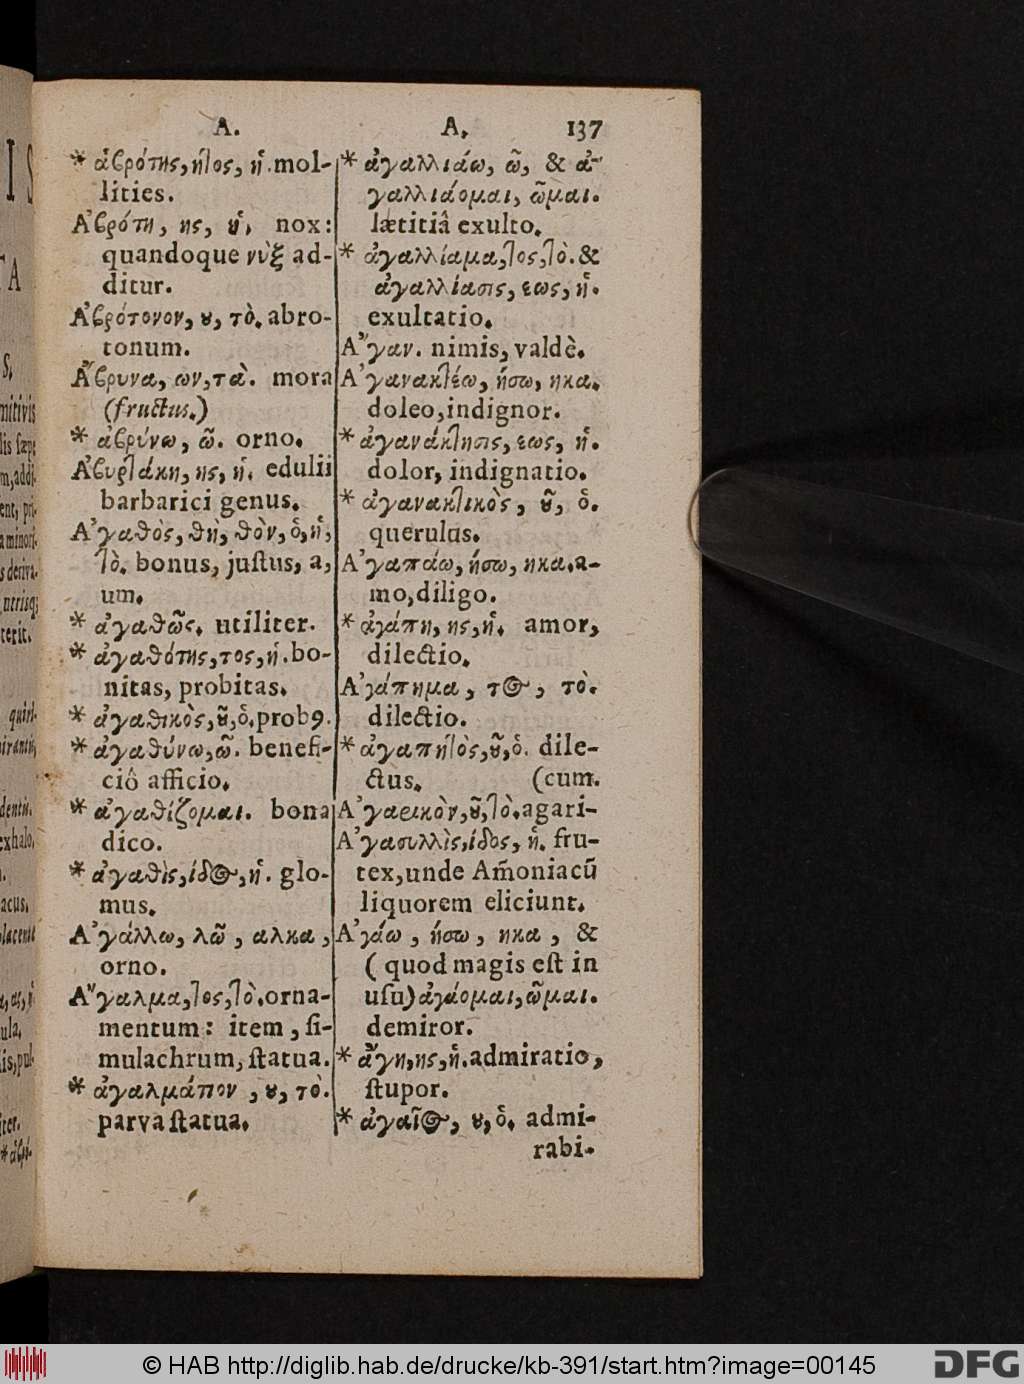 A.
* ἁβρότης, ητος, ἡ. mol-
lities.
Ἀβρότη, ης, ἡ. nox:
quandoque νὺξ ad-
ditur.
Ἀβρότονον, ου, τὸ. abro-
tonum.
Ἄβρυνα, ων, τὰ. mora
(fructus.)
* ἁβρύνω, ῶ. orno.
Ἀβυρτάκη, ης, ἡ. edulii
barbarici genus.
Ἀγαθὸς, θὴ, θὸν, ὁ, ἡ,
τὸ. bonus, justus, a,
um.
* ἀγαθῶς. utiliter.
* ἀγαθότης, τος, ἡ. bo-
nitas, probitas.
* ἀγαθικὸς, οῦ, ὁ. probꝰ.
* ἀγαθύνω, ῶ. benefi-
ciô afficio.
* ἀγαθίζομαι. bona
dico.
* ἀγαθὶς, ίδος, ἡ. glo-
mus.
Ἀγάλλω, λῶ, αλκα,
orno.
Ἄγαλμα, τος, τὸ. orna-
mentum: item, si-
mulachrum, statua.
* ἀγαλμάτιον, ου, τὸ.
parva statua.
A. 137
* ἀγαλλιάω, ῶ, & ἀ-
γαλλιάομαι, ῶμαι.
lætitiâ exulto.
* ἀγαλλίαμα, τος, τὸ. &
ἀγαλλίασις, εως, ἡ.
exultatio.
Ἄγαν. nimis, valdè.
Ἀγανακτέω, ήσω, ηκα.
doleo, indignor.
* ἀγανάκτησις, εως, ἡ.
dolor, indignatio.
* ἀγανακτικὸς, οῦ, ὁ.
querulus.
Ἀγαπάω, ήσω, ηκα. a-
mo, diligo.
* ἀγάπη, ης, ἡ. amor,
dilectio.
Ἀγάπημα, τος, τὸ.
dilectio.
* ἀγαπητὸς, οῦ, ὁ. dile-
ctus. (cum.
Ἀγαρικὸν, οῦ, τὸ. agari-
Ἀγασυλλὶς, ίδος, ἡ. fru-
tex, unde Am̃oniacũ
liquorem eliciunt.
Ἀγάω, ήσω, ηκα, &
(quod magis est in
usu) ἀγάομαι, ῶμαι.
demiror.
* ἄγη, ης, ἡ. admiratio,
stupor.
* ἀγαῖος, ου, ὁ. admi-
rabi-
© HAB http://diglib.hab.de/drucke/kb-391/start.htm?image=00145
DFG